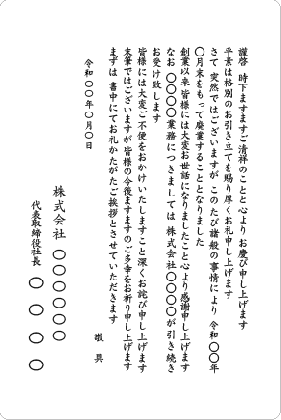 謹啓 時下ますますご清祥のことと心より お慶び申し上げます
平素は格別のお引き立てを賜り厚くお礼申し上げます
さて 突然ではございますが このたび諸般の事情により 令和〇〇年
〇月末をもって廃業することとなりました
創業以来 皆様には大変お世話になりましたこと心より感謝申し上げます
なお 〇〇〇〇業務につきましては 株式会社〇〇〇〇が引き続き
お受け致します
皆様には大変ご不便をおかけいたしますこと深くお詫び申し上げます
末筆ではございますが皆様の今後ますますのご多幸をお祈り申し上げます
まずは 書中にてお礼かたがたご挨拶とさせていただきます
敬具
令和〇〇年〇月〇日
株式会社 〇〇〇〇〇
代表取締役社長 〇〇〇〇